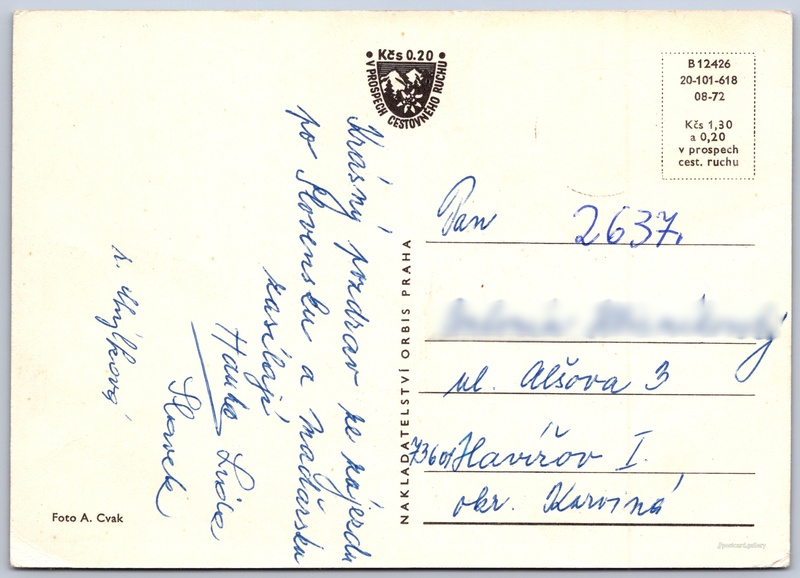 • Kčs 0.20 •
V PROSPĚCH CESTOVNÉHO RUCHU
B 12426
20-101-618
08-72
Kčs 1,30
a 0,20
v prospech
cest. ruchu
Krásný pozdrav ze zájezdu
po Slovensku a Maďarsku
zasílají
Hanka Lida
Slavek
NAKLADATELSTVÍ ORBIS PRAHA
Pan
2637.
ul. Alšova 3
73601 Havířov I.
okr. Karviná
Foto A. Cvak